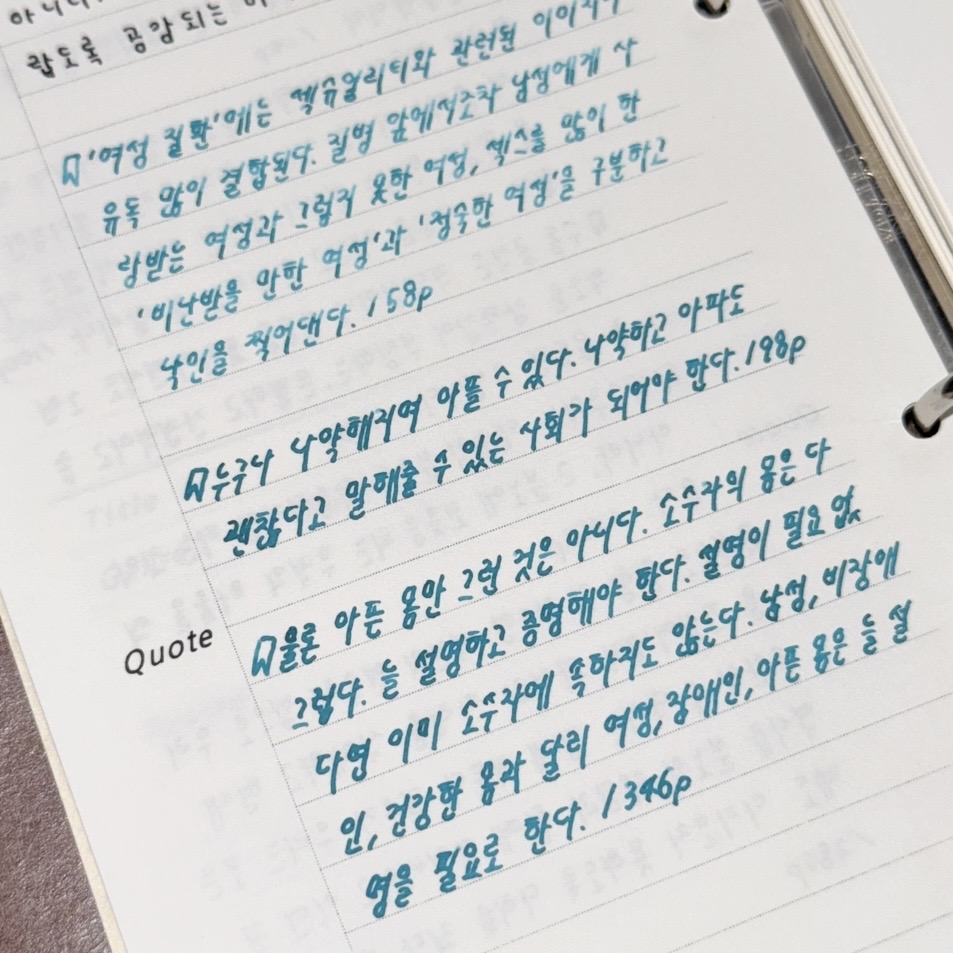 아니
랍도록 공감되는
'여성 질환'에는 섹슈얼리티와 관련된 이미지가
유독 많이 결합된다. 질병 앞에서조차 남성에게 사
랑받는 여성과 그렇지 못한 여성, 섹스를 많이 한
'비난받을 만한 여성'과 '정숙한 여성'을 구분하고
낙인을 찍어댄다. / 58p
누구나 나약해지며 아플 수 있다. 나약하고 아파도
괜찮다고 말해줄 수 있는 사회가 되어야 한다. / 98p
Quote
물론 아픈 몸만 그런 것은 아니다. 소수자의 몸은 다
그렇다. 늘 설명하고 증명해야 한다. 설명이 필요 없
다면 이미 소수자에 속하지도 않는다. 남성, 비장애
인, 건강한 몸과 달리 여성, 장애인, 아픈 몸은 늘 설
명을 필요로 한다. / 346p